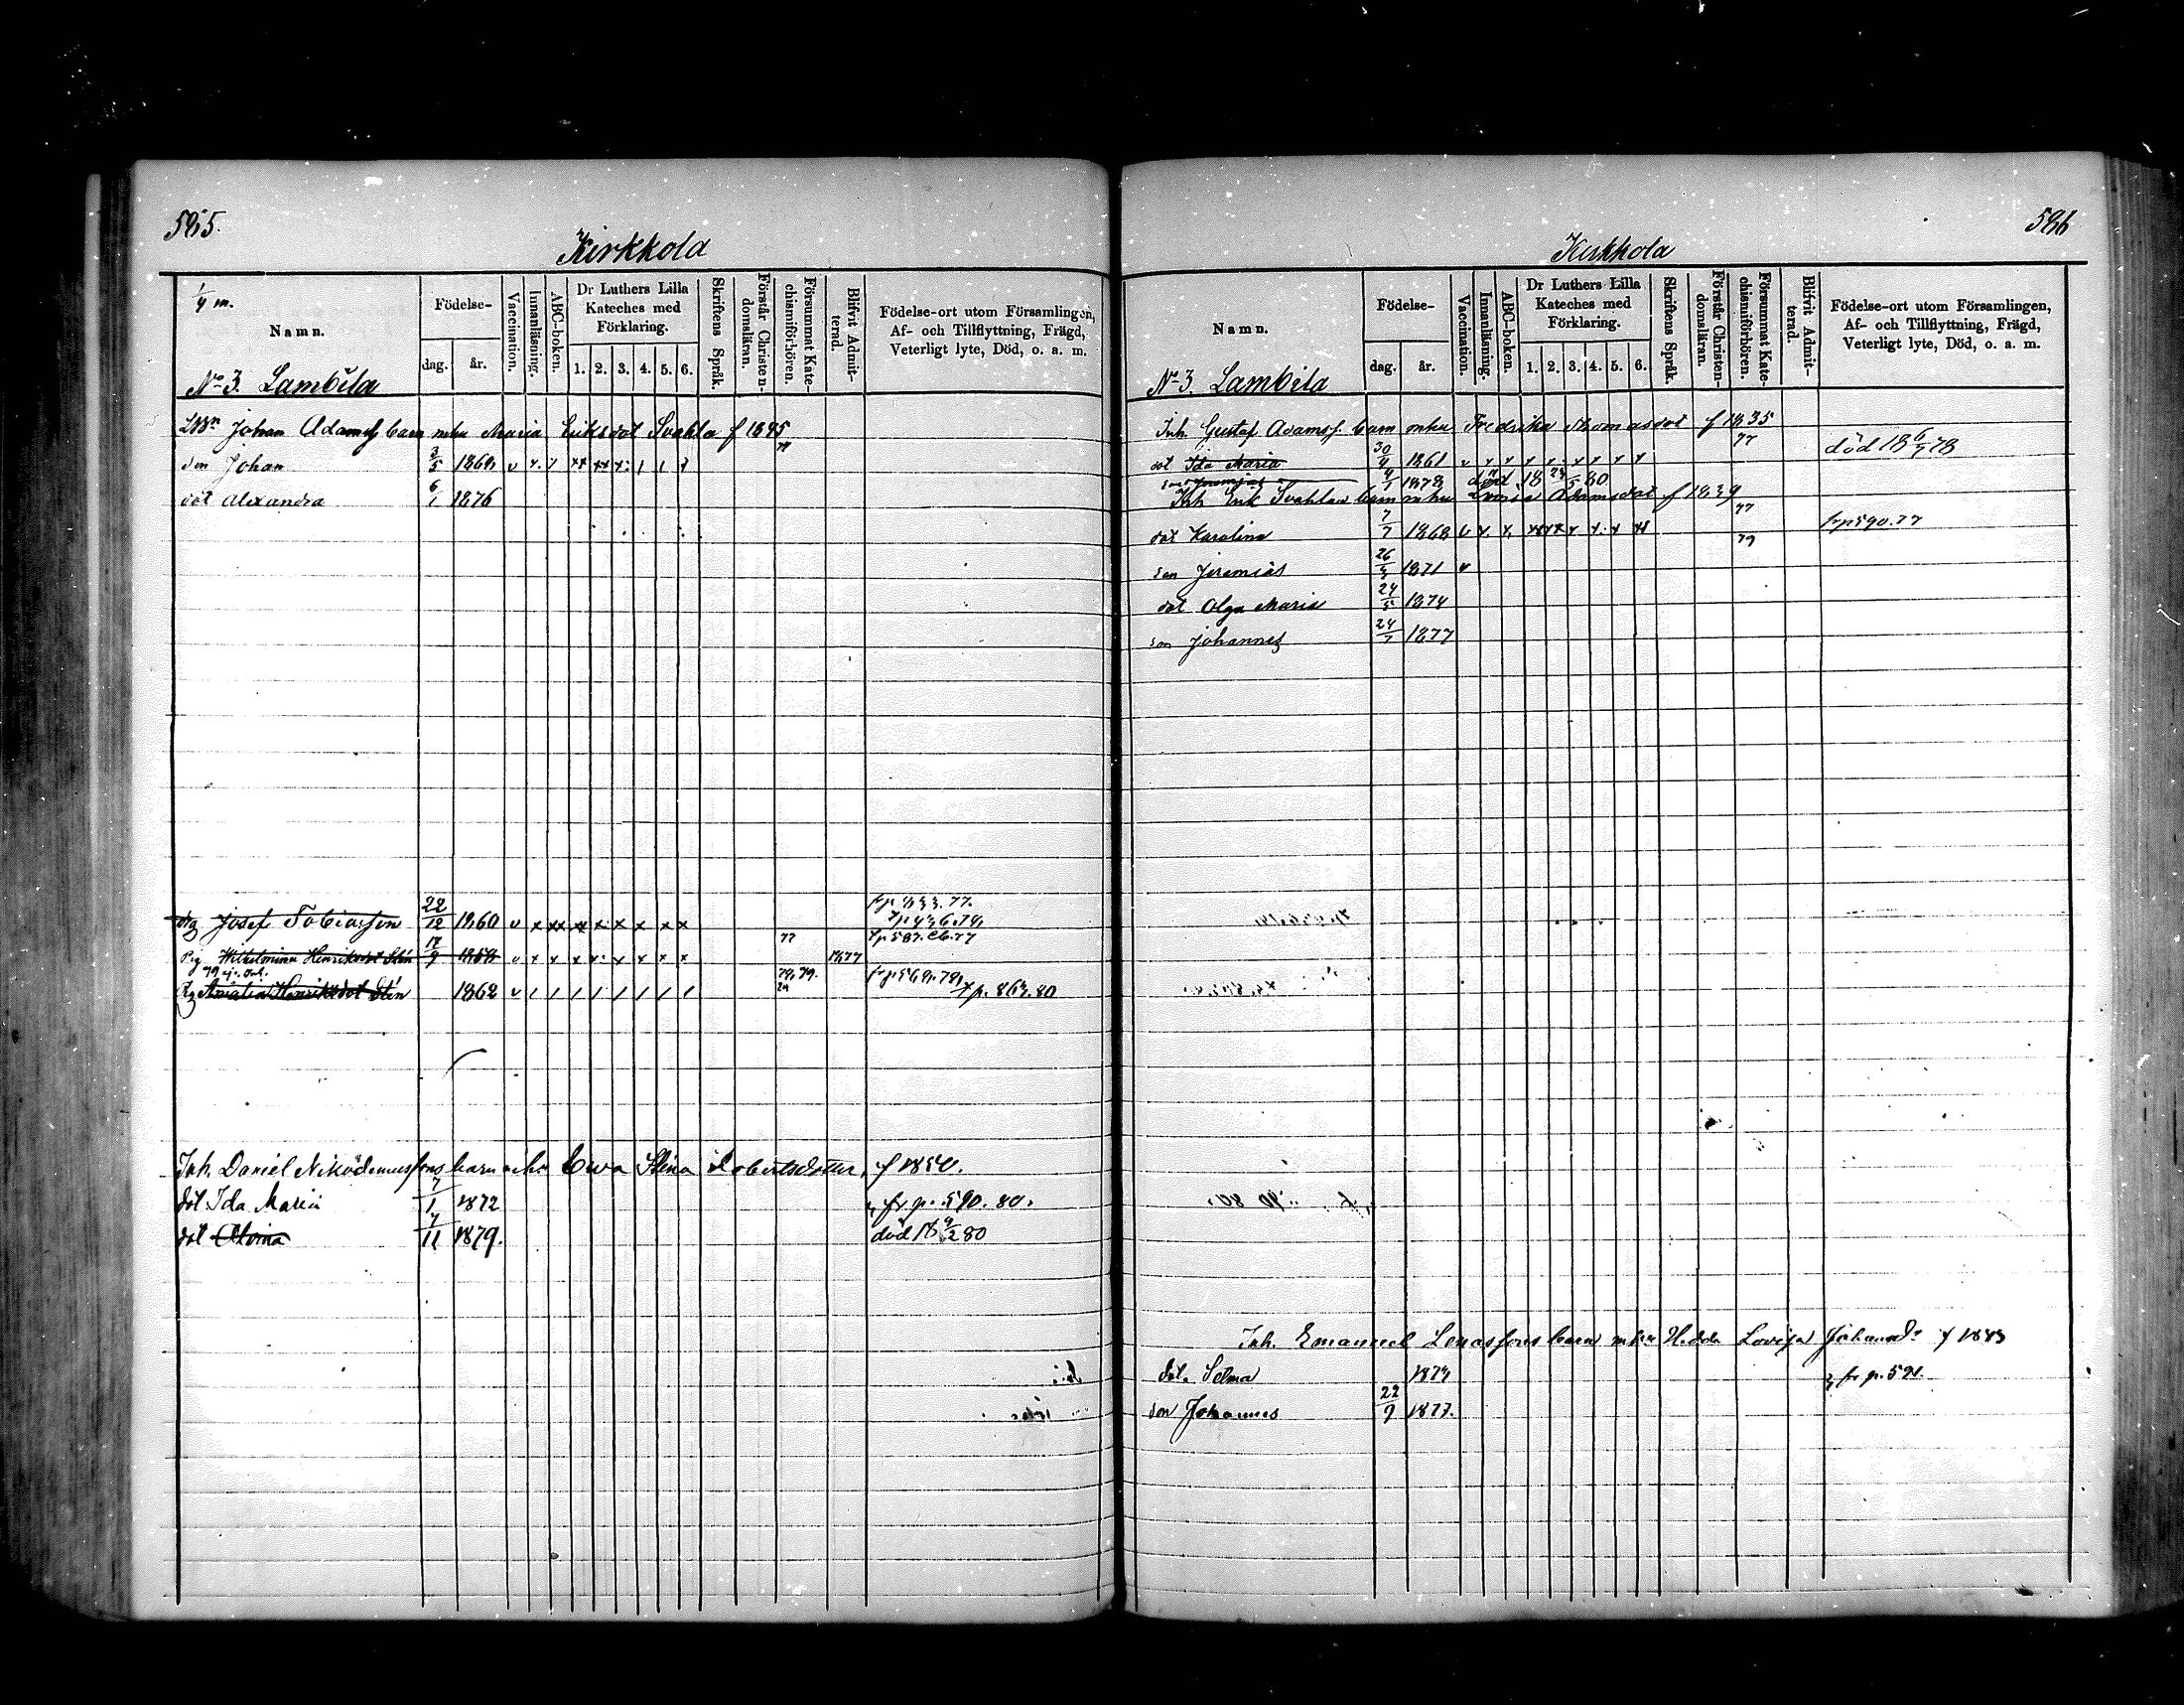 585.
Kirkkola
1/4 m.
Namn.
Födelse-
dag.
år.
Vaccination.
Innanläsning.
ABC-boken.
Dr Luthers Lilla
Kateches med
Förklaring.
1. 2. 3. 4. 5. 6.
Skriftens Språk.
Förstår Christen-
domsläran.
Försummat Kate-
chismiförhören.
Blifvit Admit-
terad.
Födelse-ort utom Församlingen,
Af- och Tillflyttning, Frägd,
Veterligt lyte, Död, o. a. m.
No 3. Lambila
Johan Adamss barn mhu Maria Eriksdot Svahla f 1845
son Johan 3/5 1864 v x
dot Alexandra 6/1 1876
drg Josef Tobiasson 22/12 1860 v x xx xx x x x x x
Pig Wilhelmina Henriksdot Stén 17/9 1858 v x x x x x x x x 77 1877
Pig Amalia Henriksdot Stén 1862 v / / / / / / / / 78, 79. p. 864. 80
Inh. Daniel Nikodemussons barn mhu Ewa Stina Robertsdotter, f 1850.
dot Ida Maria 7/1 1872 fr p. 590. 80.
dot Alvina 4/11 1879. död 18 9/2 80
586
Kirkkola
Namn.
Födelse-
dag.
år.
Vaccination.
Innanläsning.
ABC-boken.
Dr Luthers Lilla
Kateches med
Förklaring.
1. 2. 3. 4. 5. 6.
Skriftens Språk.
Förstår Christen-
domsläran.
Försummat Kate-
chismiförhören.
Blifvit Admit-
terad.
Födelse-ort utom Församlingen,
Af- och Tillflyttning, Frägd,
Veterligt lyte, Död, o. a. m.
No 3. Lambila
Inh. Gustaf Adamss. barn mhu Fredrika Thomasdot f 1835
dot Ida Maria 30/4 1861 v x x x x x x x x 77 död 18 6/7 78
son 4/1 1878 död 18 5 80
Inh Erik Svahlas barn mhu Lovisa Adamsdot f 1839
dot Karolina 7/7 1868 v x x xx xx x x x xx 77 79 frp 590. 77
son Jeremias 26/4 1871 v
dot Olga Maria 24/5 1874
son Johannes 24/7 1877
Inh. Emanuel Lenassons barn mhu Hedda Lovisa Johansd. f 1843
dot. Selma 1874 fr p. 591.
son Johannes 22/9 1877.